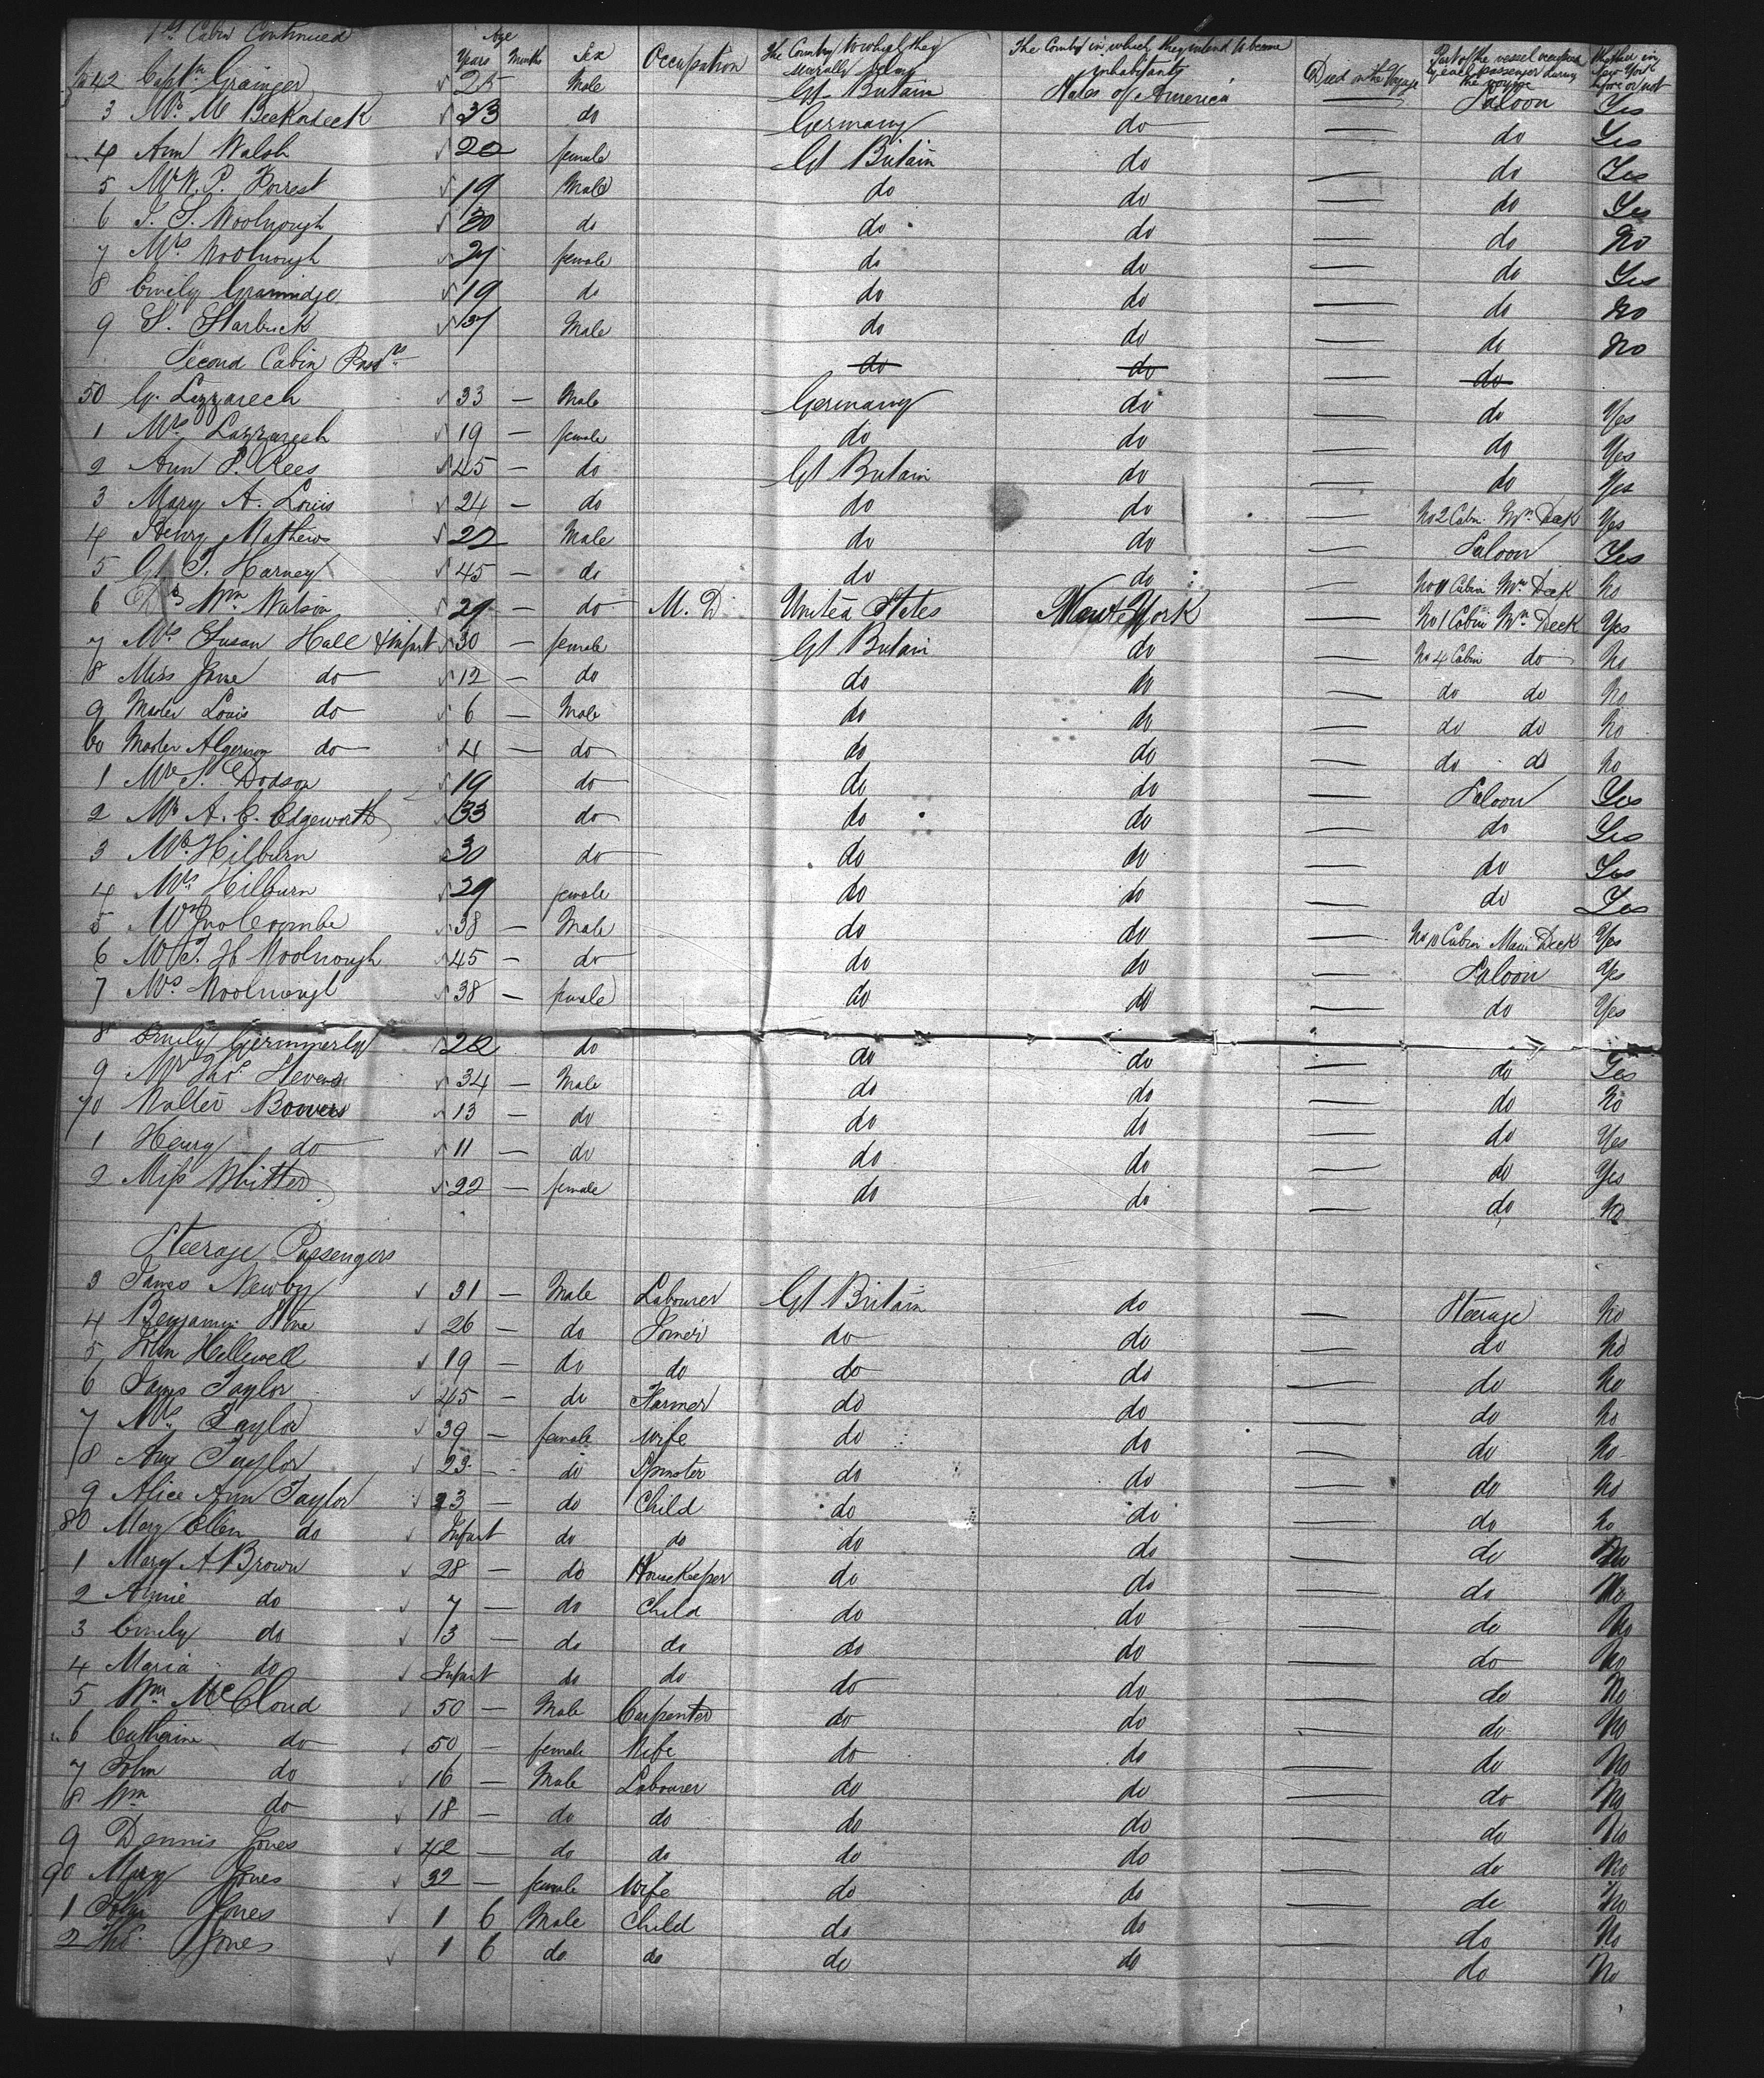 1st Cabin Continued
Age
Years Months Sex Occupation The Country to which they severally belong The Country in which they intend to become inhabitants Died on the Voyage Part of the vessel occupied by each passenger during the voyage Whether in New York before or not
No 42 Captn Grainger 25 Male Gt Britain States of America — Saloon Yes
3 Mr M 33 do Germany do — do Yes
4 Ann Walsh 20 female Gt Britain do — do Yes
5 Mr W. P. Forrest 19 Male do do — do Yes
6 T. S. Woolnough 30 do do do — do No
7 Mrs Woolnough 27 female do do — do Yes
8 Emily 19 do do do — do No
9 S. Starbuck 37 Male do do — do No
Second Cabin Passrs do do — do
50 G. Lazzarech 33 — Male Germany do — do Yes
1 Mrs Lazzarech 19 — female do do — do Yes
2 Ann P. Rees 45 — do Gt Britain do — do Yes
3 Mary A. Louis 24 — do do do — No 2 Cabin Mn Deck Yes
4 Henry Mathews 22 Male do do — Saloon Yes
5 G. J. Harney 45 — do do do — No 11 Cabin Mn Deck No
6 Dr Wm Watson 29 — do M. D. United States New York — No 1 Cabin Mn Deck Yes
7 Mrs Susan Hall & Infant 30 — female Gt Britain do — No 4 Cabin do No
8 Miss Jane do 12 — do do do — do do No
9 Master Louis do 6 — Male do do — do do No
60 Master Algernon do 4 — do do do — do do No
1 Mr S. Dodson 19 do do do — Saloon Yes
2 Mr A. C. Edgeworth 33 do do do — do Yes
3 Mr Hilburn 30 do do do — do Yes
4 Mrs Hilburn 29 female do do — do Yes
5 Mr Jno Coombe 38 — Male do do — No 11 Cabin Main Deck Yes
6 Mr T. H Woolnough 45 — do do do — Saloon Yes
7 Mrs Woolnough 38 — female do do — do Yes
8 Emily 22 do do do — do Yes
9 Mr Thos Stevens 34 — Male do do — do No
70 Walter Bowers 13 — do do do — do Yes
1 Henry do 11 — do do do — do Yes
2 Miss Whitter 22 — female do do — do No
Steerage Passengers
3 James Newby 31 — Male Labourer Gt Britain do — Steerage No
4 Benjamin Stone 26 — do Joiner do do — do No
5 John Hellewell 19 — do do do do — do No
6 James Taylor 45 — do Farmer do do — do No
7 Mrs Taylor 39 — female Wife do do — do No
8 Amy Taylor 23 — do Spinster do do — do No
9 Alice Ann Taylor 3 — do Child do do — do No
80 Mary Ellen do Infant do do do do — do No
1 Mary A Brown 28 — do Housekeeper do do — do No
2 Annie do 7 — do Child do do — do No
3 Emily do 3 — do do do do — do No
4 Maria do Infant do do do do — do No
5 Wm McCloud 50 — Male Carpenter do do — do No
6 Catherine do 50 — female Wife do do — do No
7 John do 16 — Male Labourer do do — do No
8 Wm do 18 — do do do do — do No
9 Dennis Jones 42 — do do do do — do No
90 Mary Jones 32 — female Wife do do — do No
1 John Jones 1 6 Male Child do do — do No
2 Thos Jones 1 6 do do do do do No